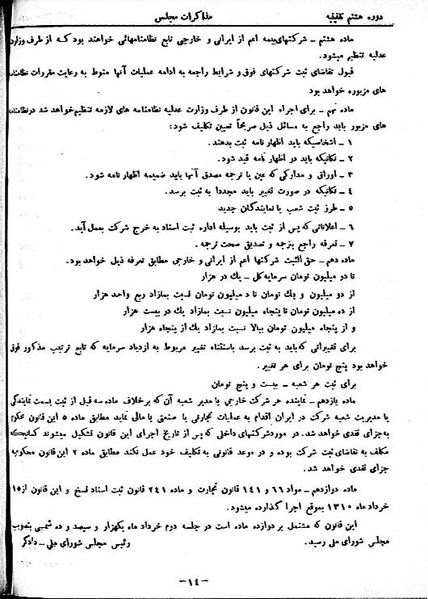 دوره هشتم تقنینیه
مذاکرات مجلس
ماده هشتم ـ شرکتهای بیمه اعم از ایرانی و خارجی تابع نظامنامهائی خواهند بود که از طرف وزارت
عدلیه تنظیم میشود.
قبول تقاضای ثبت شرکتهای فوق و شرایط راجعه به ادامه عملیات آنها منوط به رعایت مقررات نظامنامه
های مزبوره خواهد بود
ماده نهم ـ برای اجراء این قانون از طرف وزارت عدلیه نظامنامه های لازمه تنظیم خواهد شد در نظامنامه
های مزبور باید راجع به مسائل ذیل صریحاً تعیین تکلیف شود:
۱ ـ اشخاصیکه باید اظهار نامه ثبت بدهند.
۲ ـ نکاتیکه باید در اظهار نامه قید شود.
۳ ـ اوراق و مدارکی که عین یا ترجمه مصدق آنها باید ضمیمه اظهار نامه شود.
۴ ـ نکاتیکه در صورت تغییر باید مجددا به ثبت برسد.
۵ ـ طرز ثبت شعب یا نمایندگان جدید
۶ ـ اعلاناتی که پس از ثبت باید بوسیله اداره ثبت اسناد به خرج شرکت بعمل آید.
۷ ـ تعرفه راجع بترجمه و تصدیق صحت ترجمه.
ماده دهم ـ حق الثبت شرکتها اعم از ایرانی و خارجی مطابق تعرفه ذیل خواهد بود.
تا دو میلیون تومان سرمایه کل ـ یك در هزار
از دو میلیون و یك تومان تا ده میلیون تومان نسبت بمازاد ربع واحد هزار
از ده میلیون تومان تا پنجاه میلیون تومان نسبت بمازاد یك در بیست هزار
و از پنجاه میلیون تومان ببالا نسبت بمازاد یك از پنجاه هزار
برای تغییراتی که باید به ثبت برسد باستثناء تغییر مربوط به ازدیاد سرمایه که تابع ترتیب مذکور فوق
خواهد بود پنج تومان برای هر تغییر.
برای ثبت هر شعبه ـ بیست و پنج تومان
ماده یازدهم ـ نماینده هر شرکت خارجی یا مدیر شعبه آن که برخلاف ماده سه قبل از ثبت بسمت نمایندگی
یا مدیریت شعبه شرکت در ایران اقدام به عملیات تجارتی یا صنعتی یا مالی نماید مطابق ماده ۵ این قانون محکوم
به جزای نقدی خواهد شد. در مورد شرکتهای داخلی که پس از تاریخ اجرای این قانون تشکیل میشوند کسانیکه
مکلف به تقاضای ثبت شرکت بوده و در موعد قانونی به تکلیف خود عمل نکند مطابق ماده ۲ این قانون محکوم به
جزای نقدی خواهد شد.
ماده دوازدهم ـ مواد ۶۶ و ۱۴۱ قانون تجارت و ماده ۲۴۱ قانون ثبت اسناد فسخ و این قانون از ۱۵
خرداد ماه ۱۳۱۰ بموقع اجرا گذارده میشود.
این قانون که مشتمل بر دوازده ماده است در جلسه دوم خرداد ماه یکهزار و سیصد و ده شمسی بتصویب
مجلس شورای ملی رسید.
رئیس مجلس شورای ملی ـ دادگر
ـ۱٤ـ